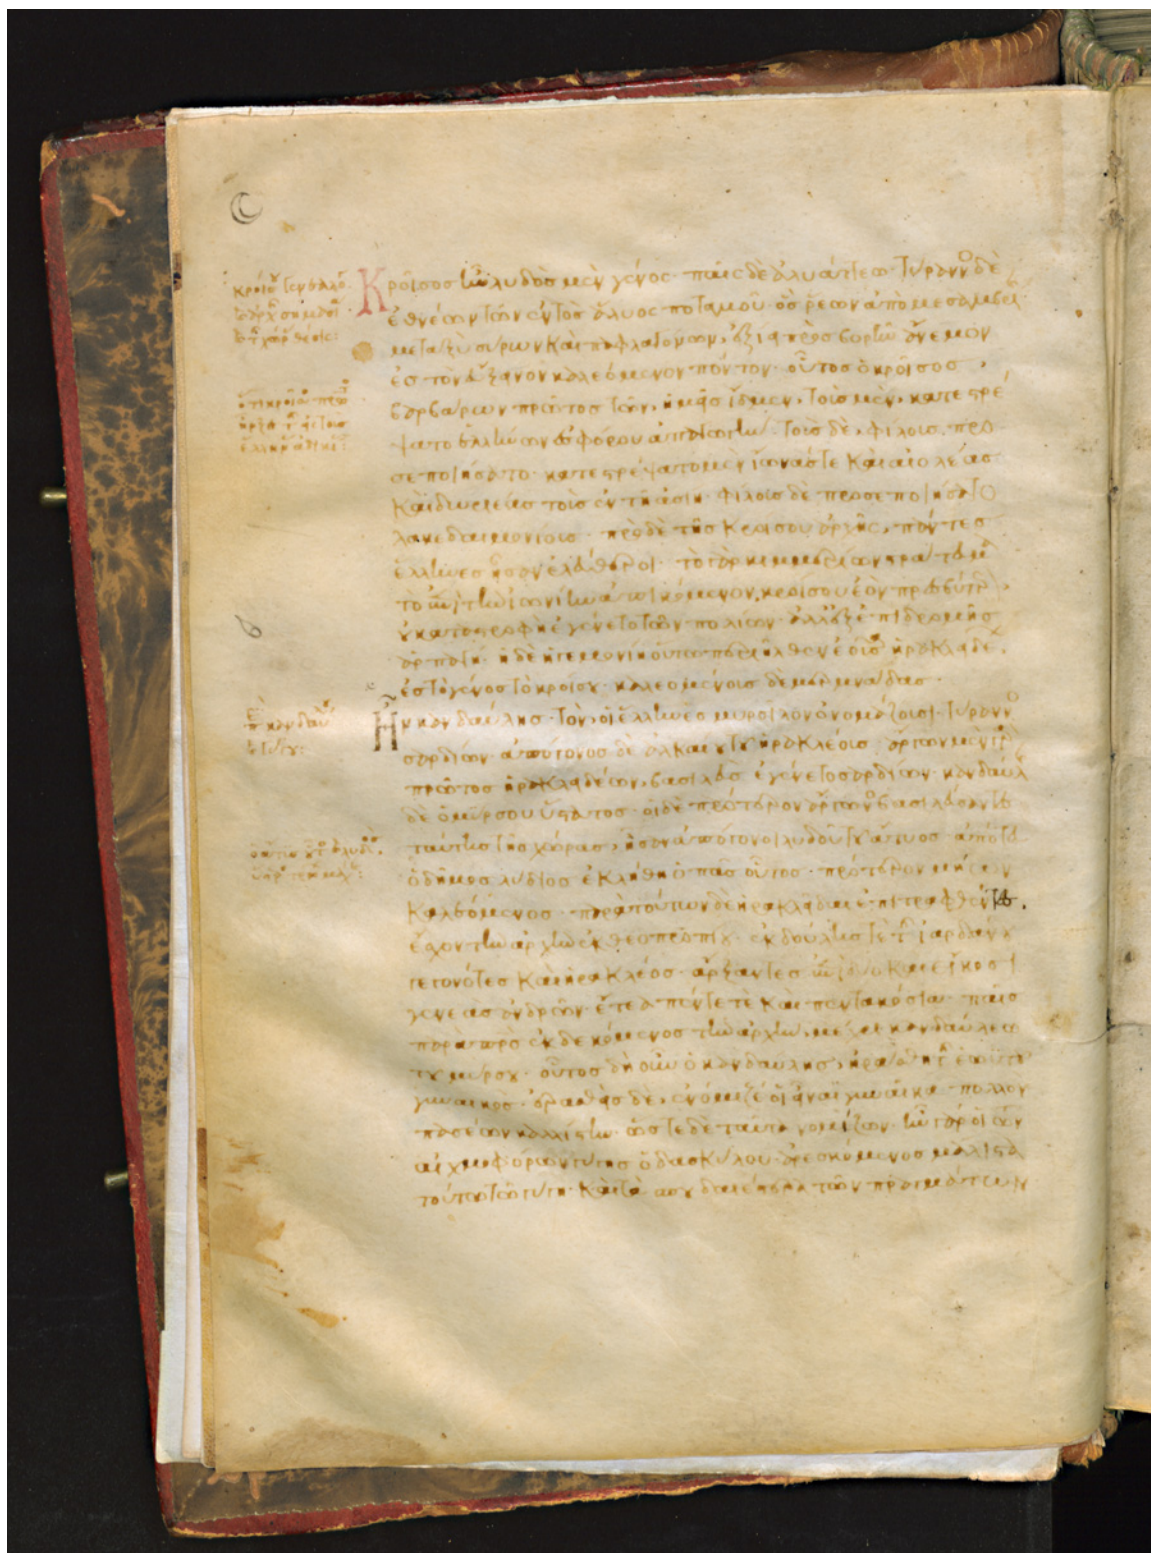 Κροῖσος ἦν λυδὸς μὲν γένος· παῖς δὲ ἀλυάττεω· τύραννος δὲ
ἐθνέων τῶν ἐντὸς ἅλυος ποταμοῦ· ὃς ῥέων ἀπὸ μεσαμβρίης
μεταξὺ σύρων καὶ παφλαγόνων, ἐξίει πρὸς βορῆν ἄνεμον
ἐς τὸν εὔξεινον καλεόμενον πόντον· οὗτος ὁ κροῖσος
βαρβάρων πρῶτος τῶν ἡμεῖς ἴδμεν, τοὺς μὲν κατεστρέ
ψατο ἑλλήνων ἐς φόρου ἀπαγωγὴν· τοὺς δὲ φίλους προ
σεποιήσατο· κατεστρέψατο μὲν ἴωνάς τε καὶ αἰολέας
καὶ δωριέας τοὺς ἐν τῆ ἀσίη· φίλους δὲ προσεποιήσατο
λακεδαιμονίους· πρὸ δὲ τῆς κροίσου ἀρχῆς, πάντες
ἕλληνες ἦσαν ἐλεύθεροι· τὸ γὰρ κιμμερίων στράτευμα
τὸ ἐπὶ τὴν ἰωνίην ἀπικόμενον, κροίσου ἐὸν πρεσβύτερον,
οὐ καταστροφὴ ἐγένετο τῶν πολίων· ἀλλ' ἐξ ἐπιδρομῆς
ἁρπαγή· ἡ δὲ ἡγεμονίη οὕτω περιῆλθεν ἐοῦσα ἡρακλειδέων
ἐς τὸ γένος τὸ κροίσου· καλεομένους δὲ μερμνάδας·
Ἦν κανδαύλης· τὸν οἱ ἕλληνες μυρσίλον ὀνομάζουσι· τύραννος
σαρδίων· ἀπόγονος δὲ ἀλκαίου τοῦ ἡρακλέους·
πρῶτος ἡρακλειδέων, βασιλεὺς ἐγένετο σαρδίων· κανδαύλης
δὲ ὁ μύρσου ὕστατος· οἱ δὲ πρότερον βασιλεύσαντες
ταύτης τῆς χώρας, ἦσαν ἀπόγονοι λυδοῦ τοῦ ἄτυος· ἀπ' ὅτευ
ὁ δῆμος λύδιος ἐκλήθη ὁ πᾶς οὗτος· πρότερον μηίων
καλεόμενος· παρὰ τούτων δὲ ἡρακλεῖδαι ἐπιτραφθέντες
ἔσχον τὴν ἀρχὴν ἐκ θεοπροπίου· ἐκ δούλης τε τῆς ἰαρδάνου
γεγονότες καὶ ἡρακλέος· ἄρξαντες ἐπὶ δύο καὶ εἴκοσι
γενεὰς ἀνδρῶν· ἔτεα πέντε τὲ καὶ πεντακόσια· παῖς
παρὰ πατρὸς ἐκδεκόμενος τὴν ἀρχὴν, μέχρι κανδαύλεω
τοῦ μύρσου· οὗτος δὴ ὦν ὁ κανδαύλης, ἠράσθη τῆς ἑωυτοῦ
γυναικός· ἐρασθεὶς δὲ, ἐνόμιζέ οἱ εἶναι γυναῖκα πολλὸν
πασέων καλλίστην· ὥστε δὲ ταῦτα νομίζων· ἦν γάρ οἱ τῶν
αἰχμοφόρων γύγης ὁ δασκύλου ἀρεσκόμενος μάλιστα
τούτω τῶ γύγη· καὶ τὰ σπουδαιέστερα τῶν πρηγμάτων